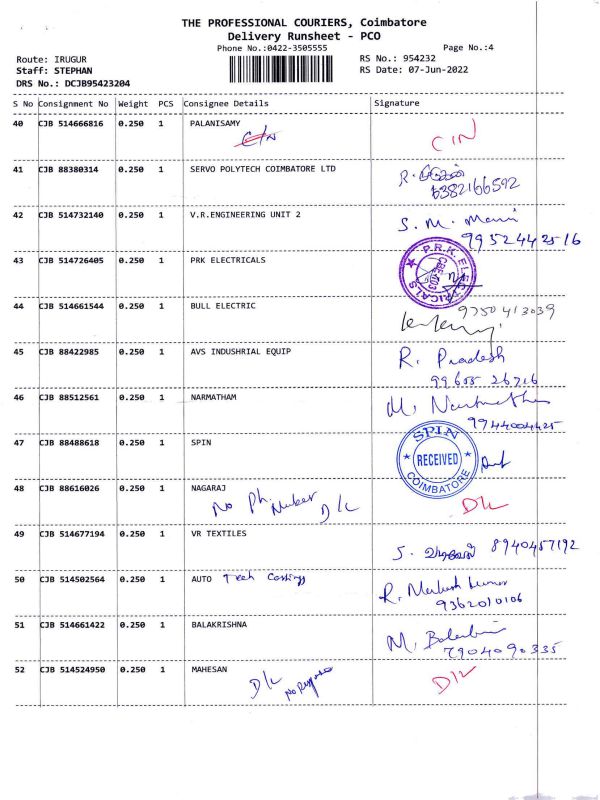 THE PROFESSIONAL COURIERS, Coimbatore
Delivery Runsheet - PCO
Phone No.:0422-3505555 Page No.:4
Route: IRUGUR RS No.: 954232
Staff: STEPHAN RS Date: 07-Jun-2022
DRS No.: DCJB95423204
S No Consignment No Weight PCS Consignee Details Signature
40 CJB 514666816 0.250 1 PALANISAMY
C/N CIN
41 CJB 88380314 0.250 1 SERVO POLYTECH COIMBATORE LTD R.
6382166592
42 CJB 514732140 0.250 1 V.R.ENGINEERING UNIT 2 S. M. Mani
9952442516
43 CJB 514726405 0.250 1 PRK ELECTRICALS P.R.K. ELECTRICALS
44 CJB 514661544 0.250 1 BULL ELECTRIC 9750413039
45 CJB 88422985 0.250 1 AVS INDUSHRIAL EQUIP R. Pradesh
99655 26716
46 CJB 88512561 0.250 1 NARMATHAM M. Narmatha
9944004425
47 CJB 88488618 0.250 1 SPIN SPIN
RECEIVED
COIMBATORE
48 CJB 88616026 0.250 1 NAGARAJ
No Ph. Number D/L D/L
49 CJB 514677194 0.250 1 VR TEXTILES S. 8940457192
50 CJB 514502564 0.250 1 AUTO Tech Castings R. Mahesh kumar
9362010106
51 CJB 514661422 0.250 1 BALAKRISHNA M.
7904090335
52 CJB 514524950 0.250 1 MAHESAN
D/L No Response D/L